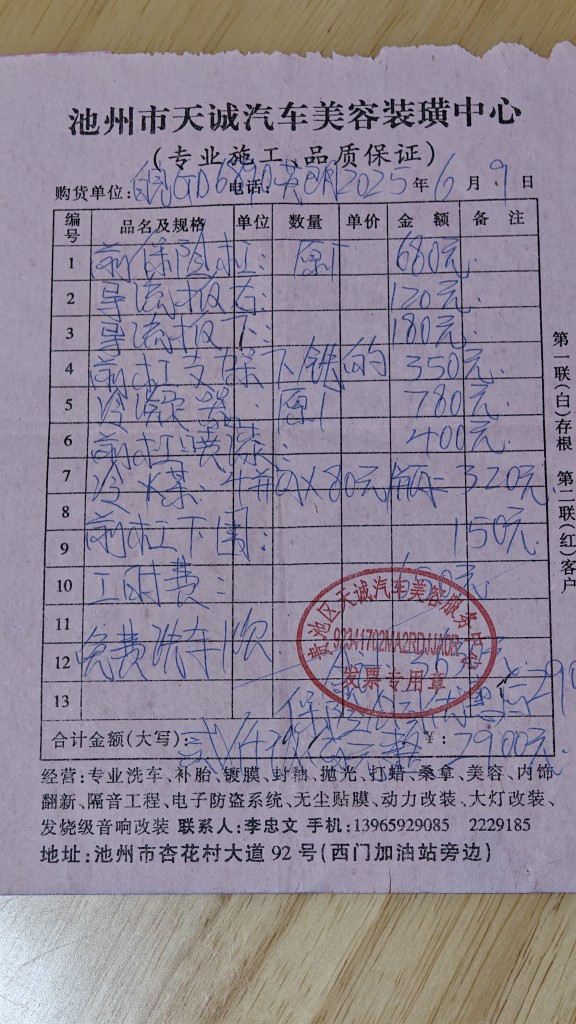 池州市天诚汽车美容装璜中心
(专业施工、品质保证)
购货单位: 皖GD6890 电话: 2025年6月9日
编号 品名及规格 单位 数量 单价 金额 备注
1 前保险杠: 原厂 680元.
2 导流板右: 120元.
3 导流板下: 180元.
4 前杠支保下铁的 350元.
5 冷凝器: 原厂 780元.
6 前杠喷漆: 400元.
7 冷媒: 4瓶 X80元/瓶= 320元
8
9 前杠下围: 150元.
10 工时费: 元
11
12 免费洗车1次
13
合计金额(大写): ¥: 2900元.
黄池区天诚汽车美容服务中心
发票专用章
经营:专业洗车、补胎、镀膜、封釉、抛光、打蜡、桑拿、美容、内饰
翻新、隔音工程、电子防盗系统、无尘贴膜、动力改装、大灯改装、
发烧级音响改装 联系人:李忠文 手机:13965929085 2229185
地址:池州市杏花村大道92号(西门加油站旁边)
第一联(白)存根 第二联(红)客户